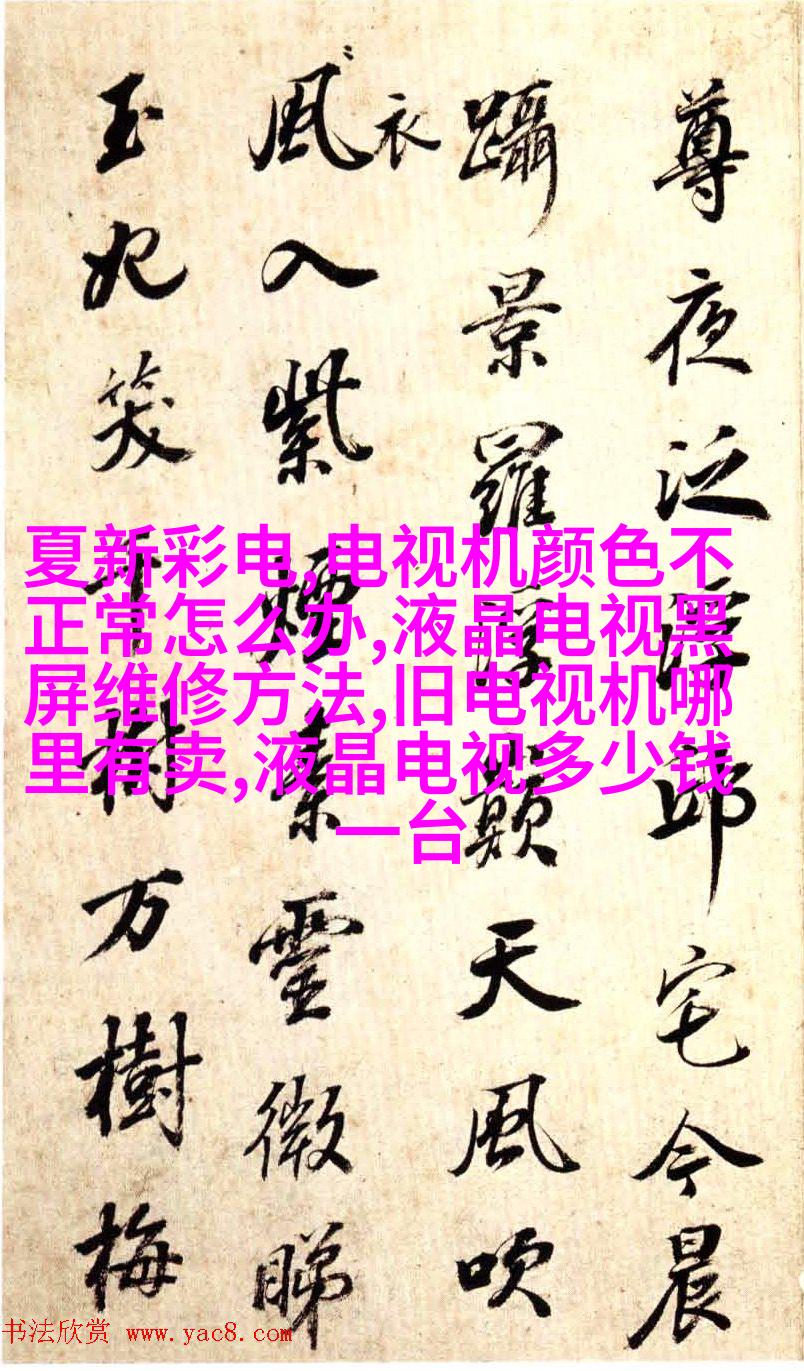 尊夜泛邱宅今晨
躡景羅浮巔天風吹
衣
風入紫煙素靈微睇
玉妃笑千樹万樹梅
夏新彩电,电视机颜色不
正常怎么办,液晶电视黑
屏维修方法,旧电视机哪
里有卖,液晶电视多少钱
一台
书法欣赏 www.yac8.com